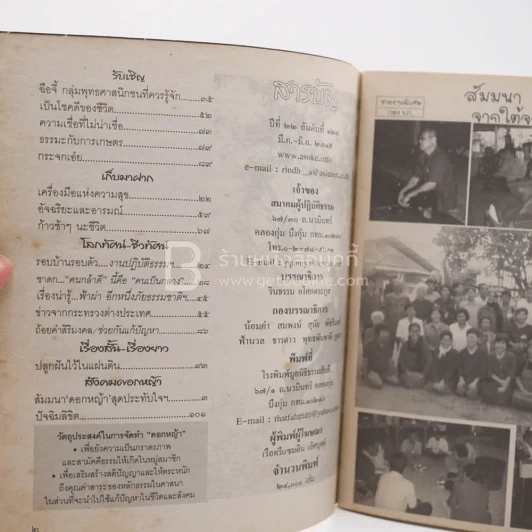 รับเชิญ
ฉือจี้ กลุ่มพุทธศาสนิกชนที่ควรรู้จัก.........๓๕
เป็นโชคดีของชีวิต.........๕๒
ความเชื่อที่ไม่น่าเชื่อ.........๗๓
ธรรมะกับการเกษตร.........๗๙
กระจกเอ๋ย.........๘๙
เก็บมาฝาก
เครื่องมือแห่งความสุข.........๒๒
อัจฉริยะและอารมณ์.........๕๙
ก้าวช้าๆ นะชีวิต.........๖๗
โลกทัศน์-ชีวทัศน์
รอบบ้านรอบตัว....งานปฏิบัติธรรมฯ
ชาดก..."คนกล้าดี" นี้คือ "คนเป็นกลาง"
เรื่องน่ารู้...ฟ้าผ่า อีกหนึ่งภัยธรรมชาติฯ
ข่าวจากกระทรวงต่างประเทศ
ถ้อยคำสิริมงคล/ช่วยกันแก้ปัญหา.........๘๖
เรื่องสั้น-เรื่องยาว
ปลูกฝันไว้ในแผ่นดิน.........๙๓
สังคมดอกหญ้า
สัมมนา'ดอกหญ้า'สุดประทับใจฯ.........๓
ปัจฉิมลิขิต.........๑๐๑
วัตถุประสงค์ในการจัดทำ "ดอกหญ้า"
• เพื่อยังความเป็นภราดรภาพ
และสามัคคีธรรมให้เกิดในหมู่สมาชิก
• เพื่อเสริมสร้างสติปัญญาและให้ตระหนัก
ถึงคุณค่าสาระของหลักธรรมในศาสนา
ในส่วนที่จะนำไปใช้แก้ปัญหาในชีวิตและสังคม
๒
สารบัญ
ปีที่ ๒๒ อันดับที่
มี.ค.-มิ.ย.
www.asoke.info
e-mail : rindh
เจ้าของ
สมาคมผู้ปฏิบัติธรรม
๖๗/๓๐ ถ.นวมินทร์
คลองกุ่ม บึงกุ่ม กทม.๑๐๒๔๐
โทร.๐-๒
บรรณาธิการ
รินธรรม อโศกตระกูล
กองบรรณาธิการ
น้อมคำ สมพงษ์ สุนัย
ฟ้านวล ธารดาว
พิมพ์ที่
โรงพิมพ์มูลนิธิธรรมสันติ
๖๗/๑ ถ.นวมินทร์ คลองกุ่ม
บึงกุ่ม กทม.๑๐๒๔๐
E-mail :
ผู้พิมพ์ผู้โฆษณา
จำนวนพิมพ์
เล่ม
สัมมนา
จากใต้จ
ร้านหนังสือเก็ทตี้
www.getbookie.com